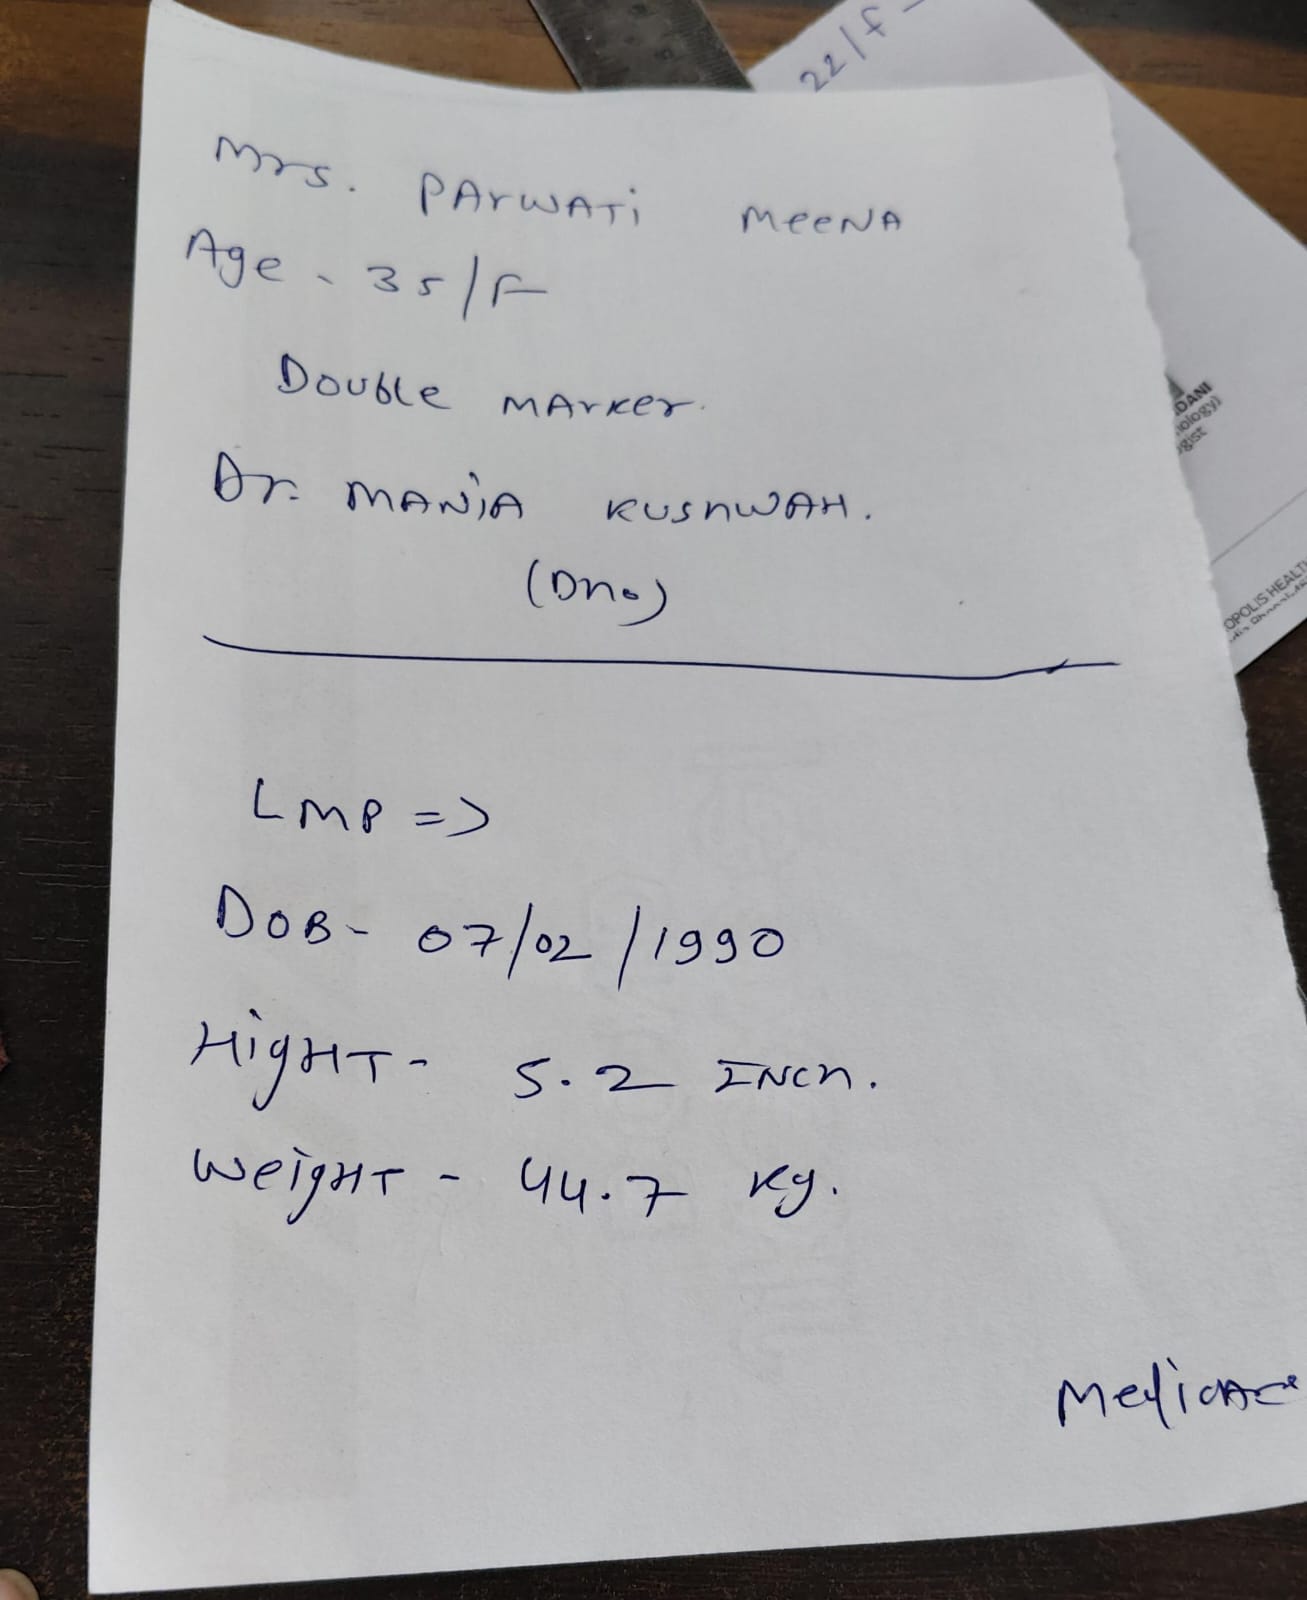 22/f -
Mrs. PArWATi MeeNA
Age - 35/F
Double MArker.
Dr. MANJA KUSHWAH.
LMP =>
DOB- 07/02/1990
HigHT- 5.2 INCH.
WeigHT - 44.7 Kg.
DANI
ology)
gist
OPOLIS HEALT